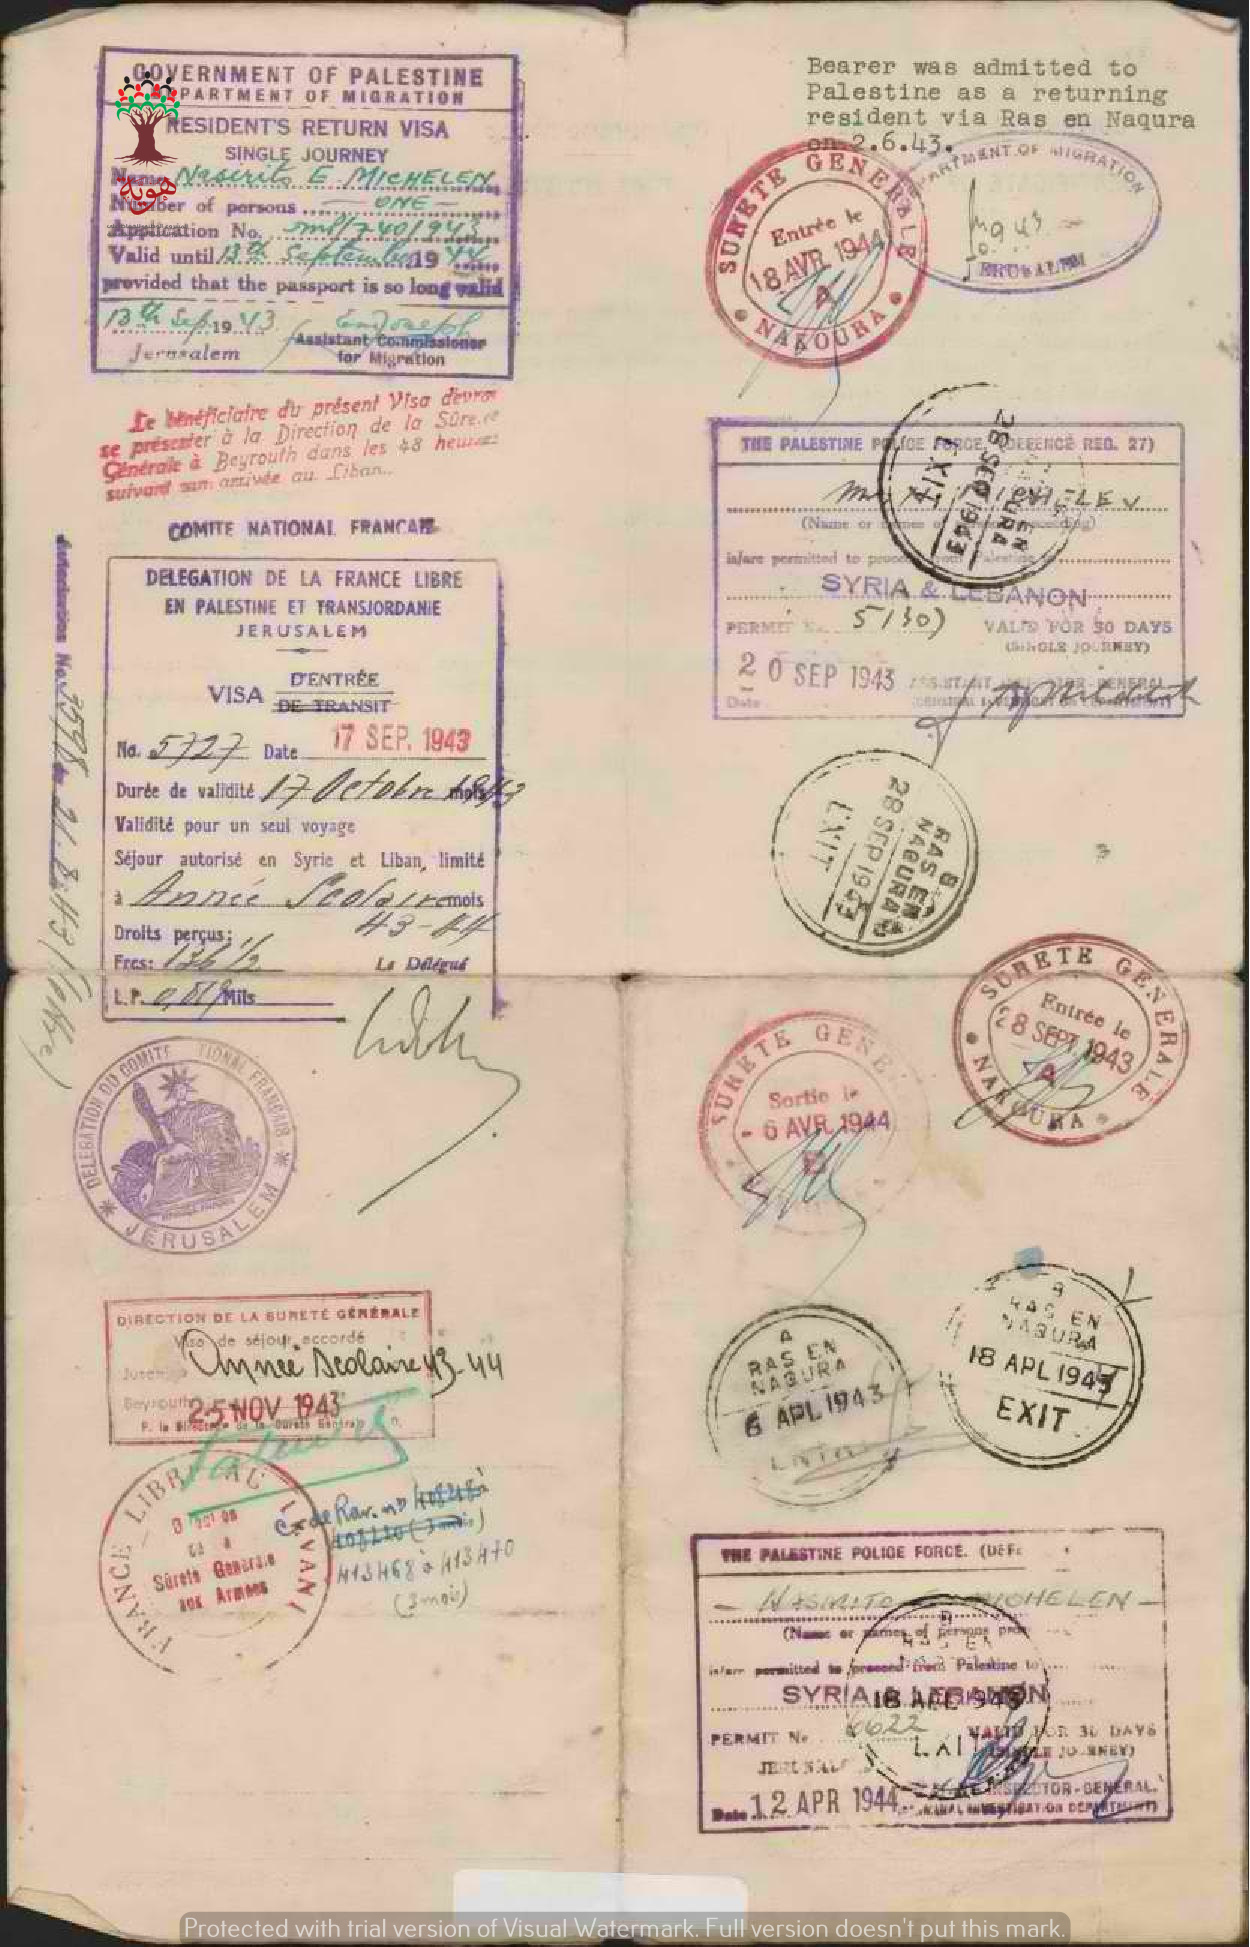 GOVERNMENT OF PALESTINE
DEPARTMENT OF MIGRATION
RESIDENT'S RETURN VISA
SINGLE JOURNEY
Name E. MICHELEN
هوية
Number of persons ONE
Application No. 740/943
Valid until 13th September 19 44
provided that the passport is so long valid
13th Sep 19 43
Assistant Commissioner
Jerusalem
for Migration
Le bénéficiaire du présent Visa devra
se présenter à la Direction de la Sûreté
Générale à Beyrouth dans les 48 heures
suivant son arrivée au Liban..
COMITE NATIONAL FRANCAIS
DELEGATION DE LA FRANCE LIBRE
EN PALESTINE ET TRANSJORDANIE
JERUSALEM
VISA D'ENTRÉE
DE TRANSIT
No. 5727 Date 17 SEP. 1943
Durée de validité 17 Octobre mois
Validité pour un seul voyage
Séjour autorisé en Syrie et Liban, limité
à Année Scolaire mois
43-44
Droits perçus:
Frcs: 176 1/2 Le Délégué
L.P. Mils
Autorisation No. du 21.8.43
DELEGATION DU COMITE NATIONAL FRANCAIS
JERUSALEM
DIRECTION DE LA SURETÉ GÉNÉRALE
Visa de séjour accordé
Année Scolaire 43-44
Beyrouth 25 NOV 1943
FRANCE LIBRE AU LEVANT
Sûreté Générale
aux Armées
413468 à 413470
(3 mois)
Bearer was admitted to
Palestine as a returning
resident via Ras en Naqura
on 2.6.43.
DEPARTMENT OF MIGRATION
JERUSALEM
SURETE GENERALE
Entrée le
18 AVR 1944
A
NAKOURA
THE PALESTINE POLICE FORCE. (DEFENCE REG. 27)
28 SEP 1943
EXIT
(Name or names of persons proceeding)
is/are permitted to proceed from Palestine to
SYRIA & LEBANON
PERMIT No. VALID FOR 30 DAYS
(SINGLE JOURNEY)
20 SEP 1943
Date
B
RAS EN
NAQURA
28 SEP 1943
EXIT
SURETE GENERALE
Entrée le
28 SEPT. 1943
A
NAKOURA
SURETE GENERALE
Sortie le
- 6 AVR. 1944
B
A
RAS EN
NAQURA
6 APL 1943
RAS EN
NAQURA
18 APL 1943
EXIT
THE PALESTINE POLICE FORCE. (DEFE
MICHELEN
(Name or names of persons
is/are permitted to proceed from Palestine to
SYRIA & LEBANON
B
RAS EN
18 APL 1943
EXIT
PERMIT No 6622 VALID FOR 30 DAYS
(SINGLE JOURNEY)
JERUSALEM
INSPECTOR-GENERAL.
Date 12 APR 1944
Protected with trial version of Visual Watermark. Full version doesn't put this mark.